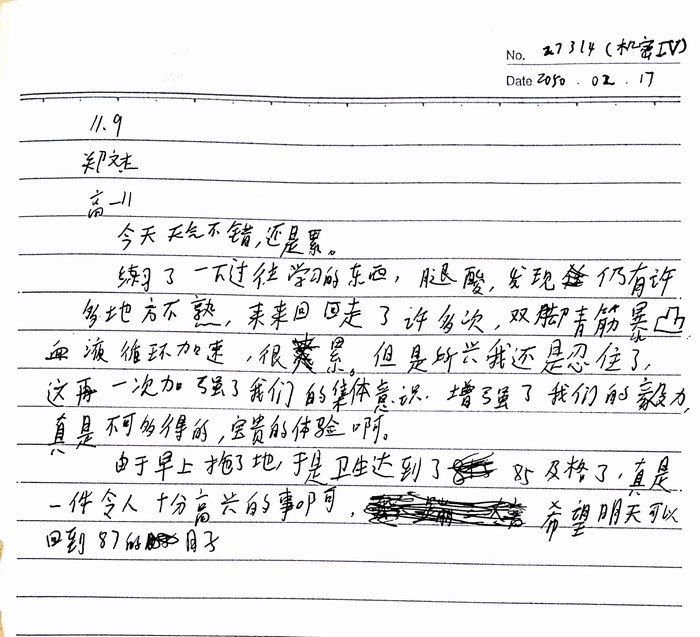 No. 27314(机密IV)
Date 2050.02.17
11.9
郑文杰
高一11
今天天气不错,还是累。
练习了一下过往学习的东西,腿酸,发现仍有许
多地方不熟,来来回回走了许多次,双脚青筋暴凸,
血液循环加速,很累。但是所兴我还是忍住了,
这再一次加强了我们的集体意识.增强了我们的毅力,
真是不可多得的,宝贵的体验啊。
由于早上拖了地,于是卫生达到了85及格了,真是
一件令人十分高兴的事啊,希望明天可以
回到87的日子